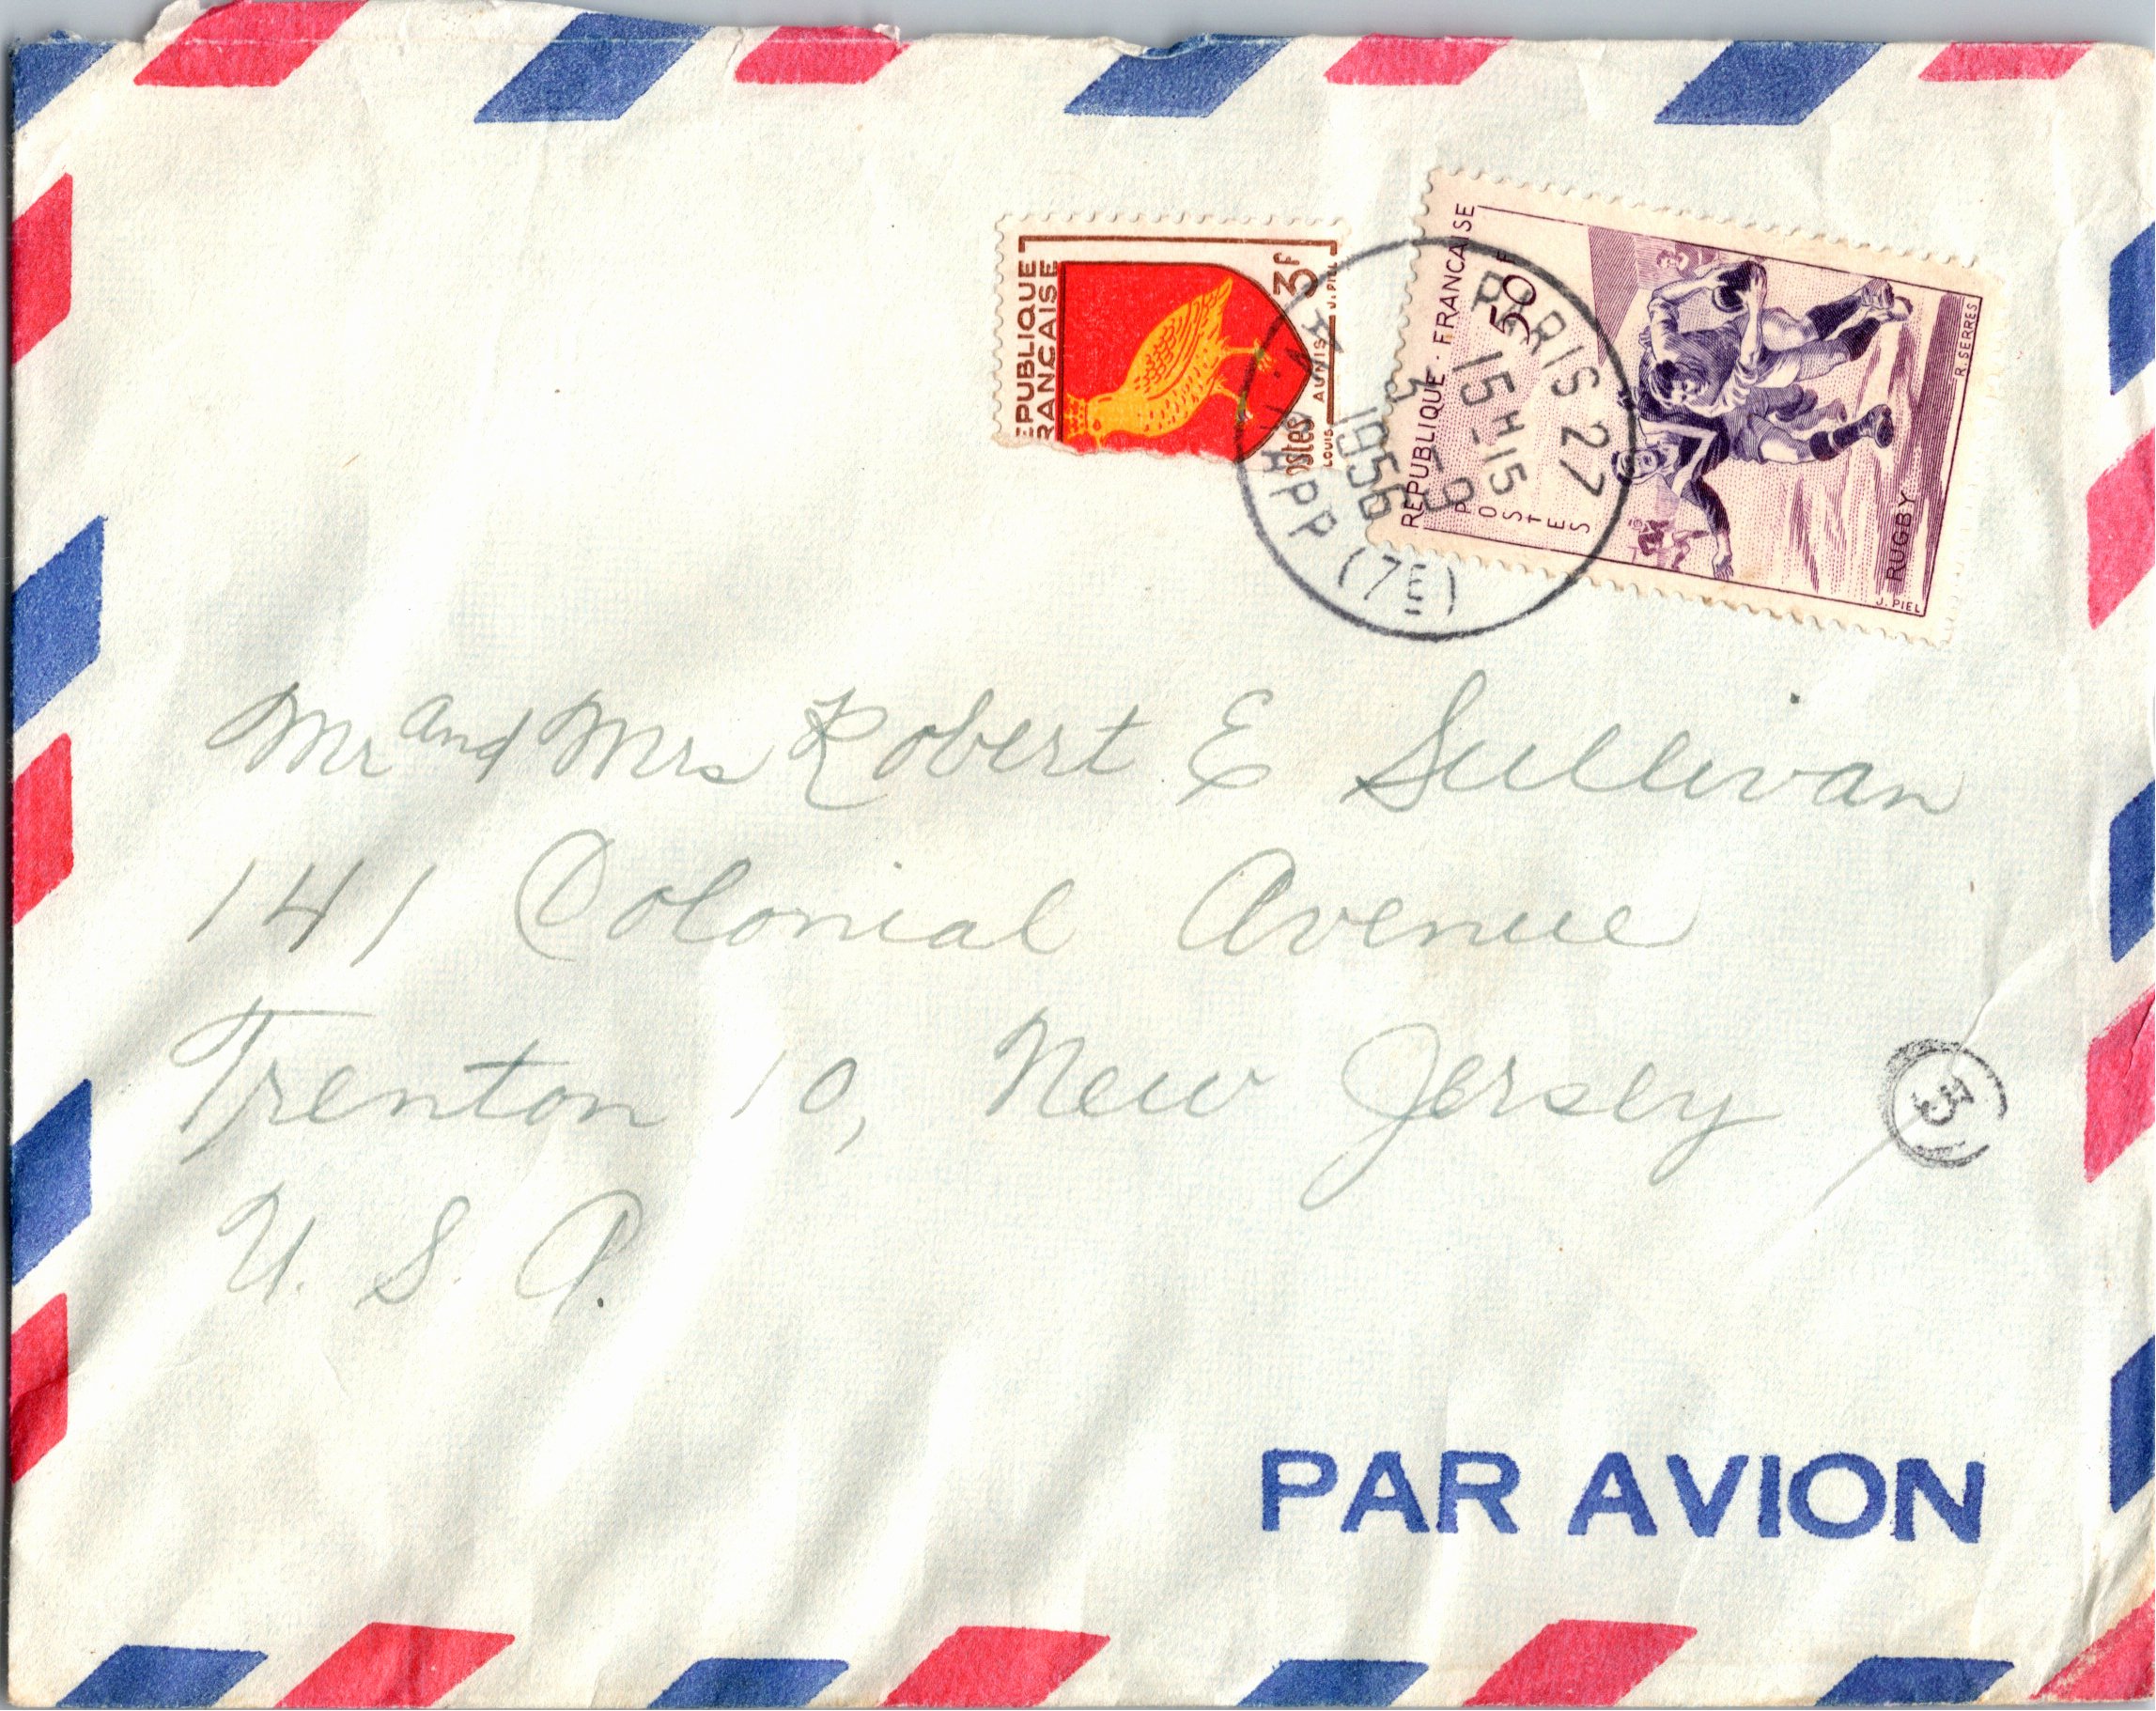 EPUBLIQUE
RANÇAISE
3F
ostes
AUNIS
LOUIS
J. PIEL
REPUBLIQUE - FRANCAISE
50F
POSTES
RUGBY
R. SERRES
J. PIEL
PARIS 27
15H15
5-9
1956
(7E)
Mr and Mrs Robert E Sullivan
141 Colonial Avenue
Trenton 10, New Jersey
U. S. A.
3
PAR AVION